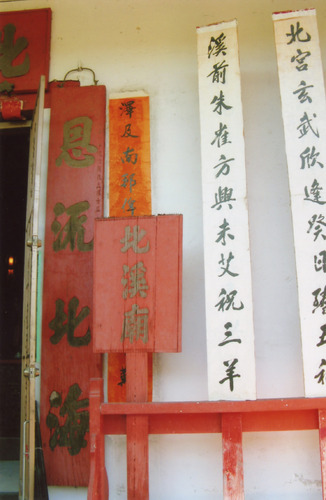 北宮玄武欣逢癸日躋五福
溪前朱雀方興未艾祝三羊
澤及南邦
北溪廟
恩流北海
北